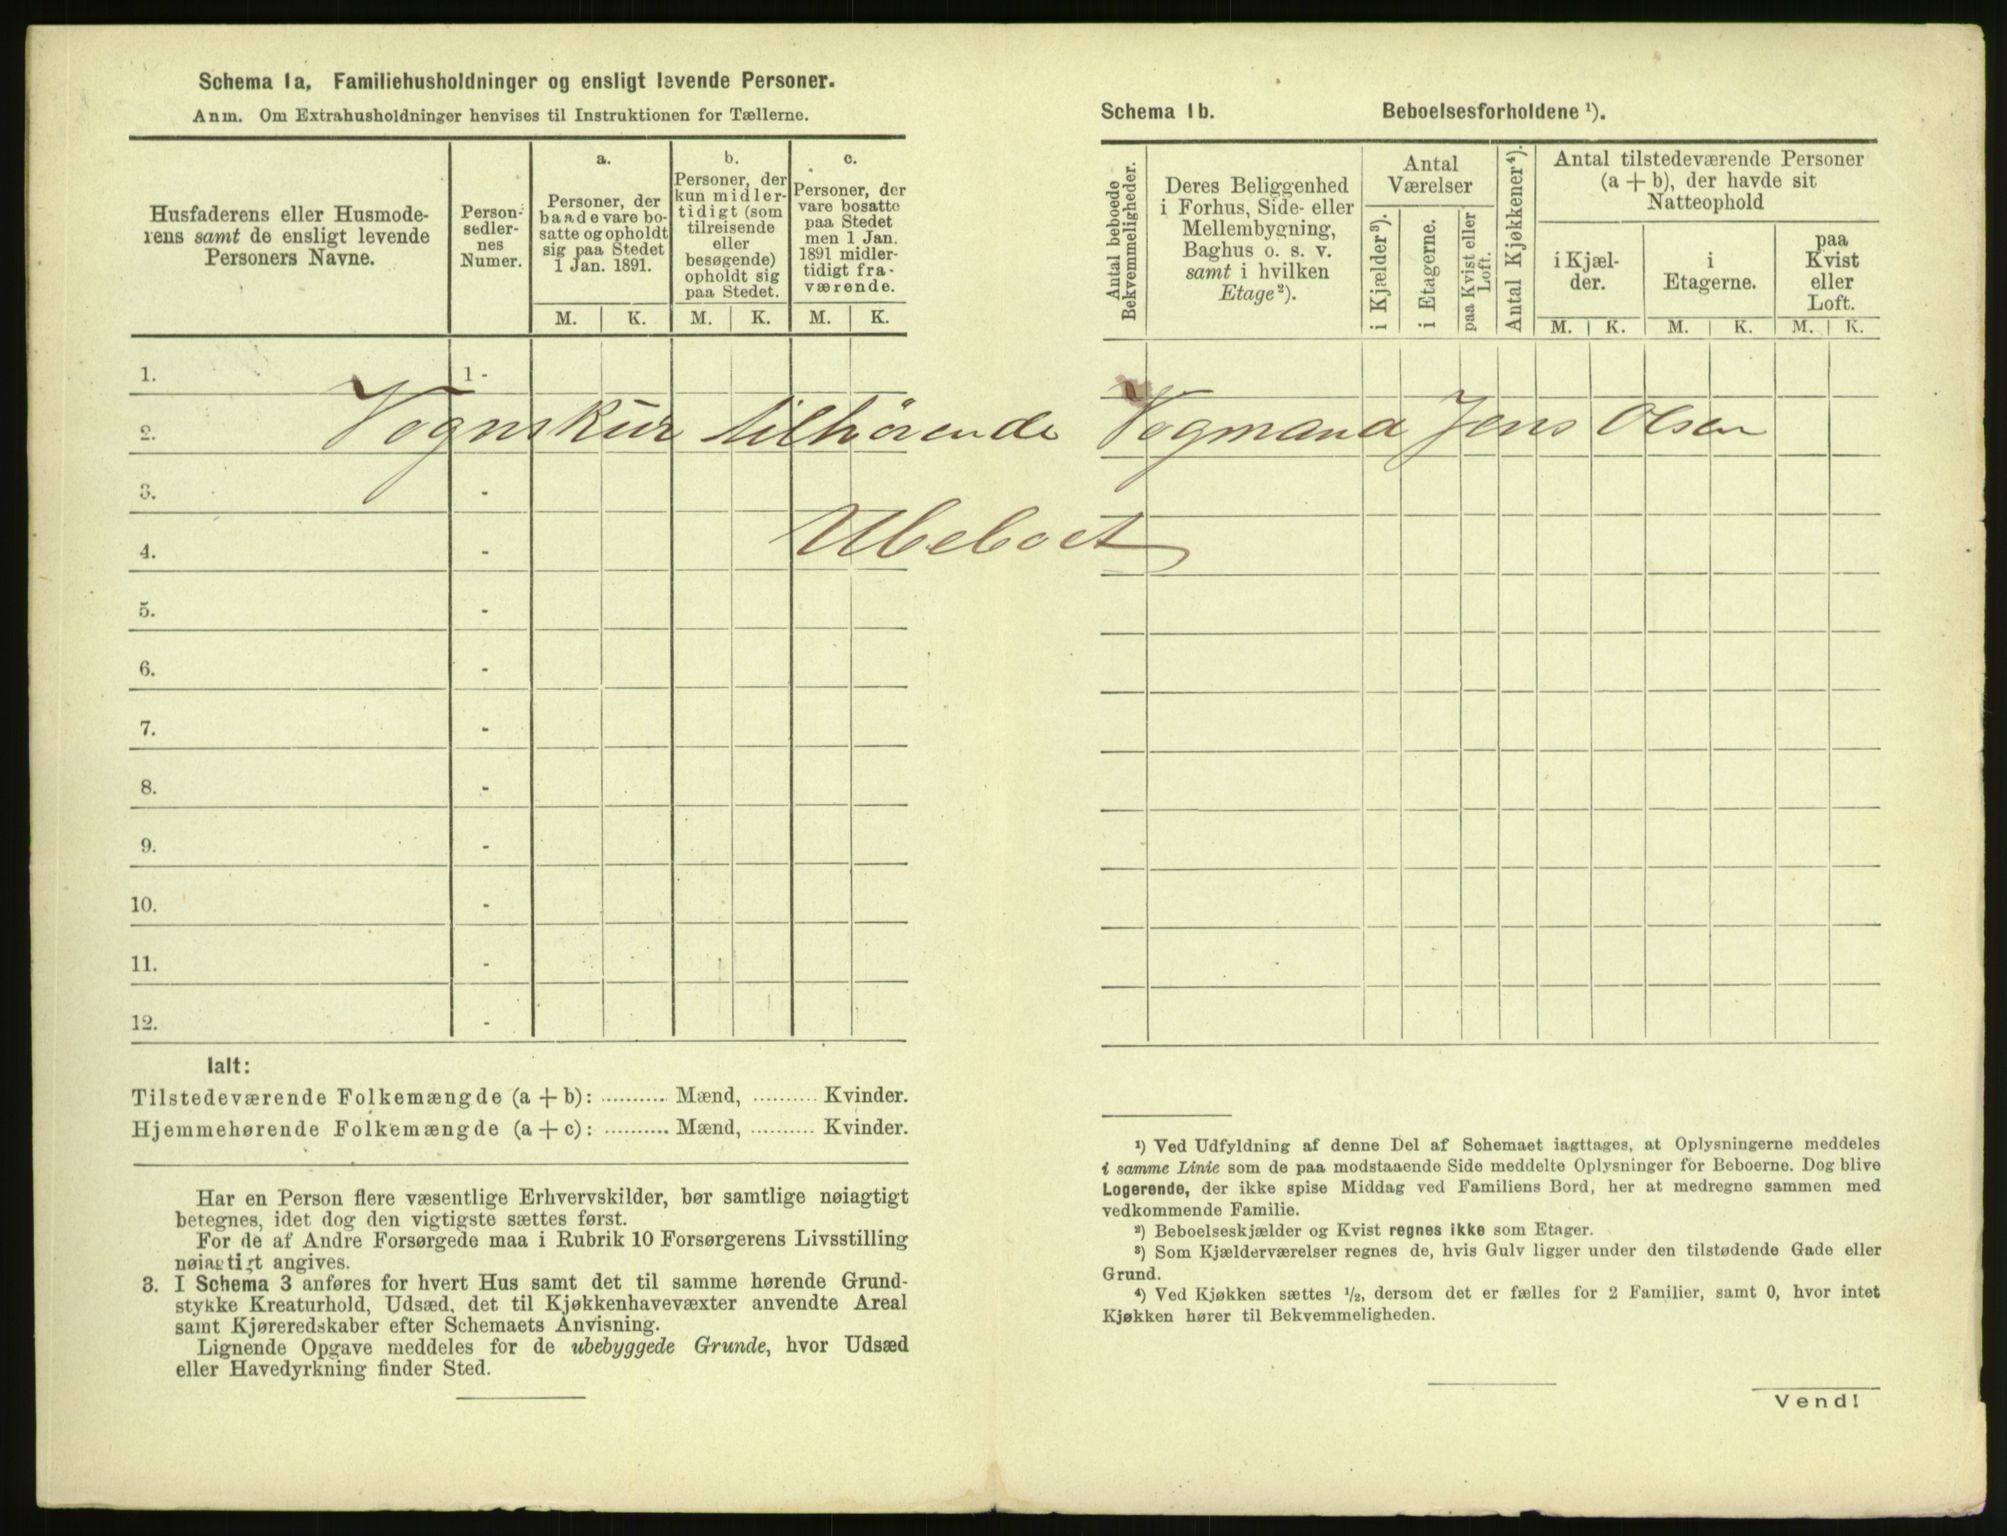 Schema 1a, Familiehusholdninger og ensligt levende Personer.
Anm. Om Extrahusholdninger henvises til Instruktionen for Tællerne.
Husfaderens eller Husmode-
rens samt de ensligt levende
Personers Navne.
Person-
sedler-
nes
Numer.
a.
Personer, der
baade vare bo-
satte og opholdt
sig paa Stedet
1 Jan. 1891.
b.
Personer, der
kun midler-
tidigt (som
tilreisende
eller
besøgende)
opholdt sig
paa Stedet.
c.
Personer, der
vare bosatte
paa Stedet
men 1 Jan.
1891 midler-
tidigt fra-
værende.
M. K. M. K. M. K.
1. 1 -
2. Vognskur tilhørende Vogmand Jens Olsen
3. -
4. - Ubeboet
5. -
6. -
7. -
8. -
9. -
10. -
11. -
12. -
Ialt:
Tilstedeværende Folkemængde (a + b): .......... Mænd, .......... Kvinder.
Hjemmehørende Folkemængde (a + c): .......... Mænd, .......... Kvinder.
Har en Person flere væsentlige Erhvervskilder, bør samtlige nøiagtigt
betegnes, idet dog den vigtigste sættes først.
For de af Andre Forsørgede maa i Rubrik 10 Forsørgerens Livsstilling
nøiagtigt angives.
3. I Schema 3 anføres for hvert Hus samt det til samme hørende Grund-
stykke Kreaturhold, Udsæd, det til Kjøkkenhavevæxter anvendte Areal
samt Kjøreredskaber efter Schemaets Anvisning.
Lignende Opgave meddeles for de ubebyggede Grunde, hvor Udsæd
eller Havedyrkning finder Sted.
Schema 1b. Beboelsesforholdene ¹).
Antal beboede
Bekvemmeligheder.
Deres Beliggenhed
i Forhus, Side- eller
Mellembygning,
Baghus o. s. v.
samt i hvilken
Etage ²).
Antal
Værelser
i Kjælder ³).
i Etagerne.
paa Kvist eller
Loft.
Antal Kjøkkener ⁴).
Antal tilstedeværende Personer
(a + b), der havde sit
Natteophold
i Kjæl-
der.
i
Etagerne.
paa
Kvist
eller
Loft.
M. K. M. K. M. K.
¹) Ved Udfyldning af denne Del af Schemaet iagttages, at Oplysningerne meddeles
i samme Linie som de paa modstaaende Side meddelte Oplysninger for Beboerne. Dog blive
Logerende, der ikke spise Middag ved Familiens Bord, her at medregne sammen med
vedkommende Familie.
²) Beboelseskjælder og Kvist regnes ikke som Etager.
³) Som Kjælderværelser regnes de, hvis Gulv ligger under den tilstødende Gade eller
Grund.
⁴) Ved Kjøkken sættes ½, dersom det er fælles for 2 Familier, samt 0, hvor intet
Kjøkken hører til Bekvemmeligheden.
Vend!